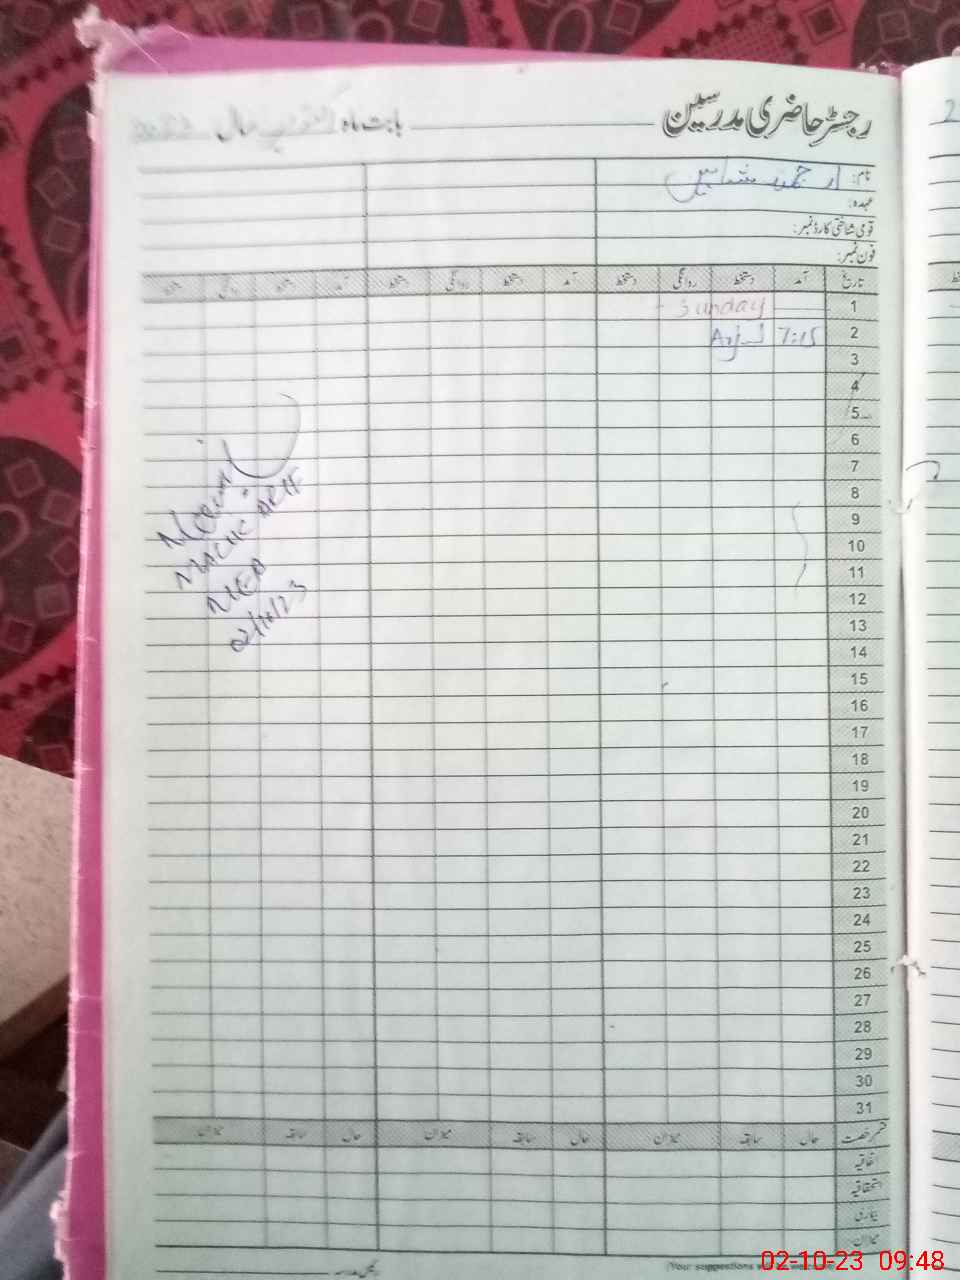 رجسٹر حاضری مدرسین بابت ماہ اکتوبر سال 2023
نام: ارجمند شاہین
عہدہ:
قومی شناختی کارڈ نمبر:
فون نمبر:
تاریخ آمد دستخط روانگی دستخط آمد دستخط روانگی دستخط آمد دستخط روانگی دستخط
1 Sunday
2 7:15
3
4
5
6
7
8
9
10
11
12
13
14
15
16
17
18
19
20
21
22
23
24
25
26
27
28
29
30
31
MEA
02/10/23
قسم رخصت حال سابقہ میزان حال سابقہ میزان حال سابقہ میزان
اتفاقیہ
استحقاقیہ
بیماری
میزان
(Your suggestions
02-10-23 09:48
2